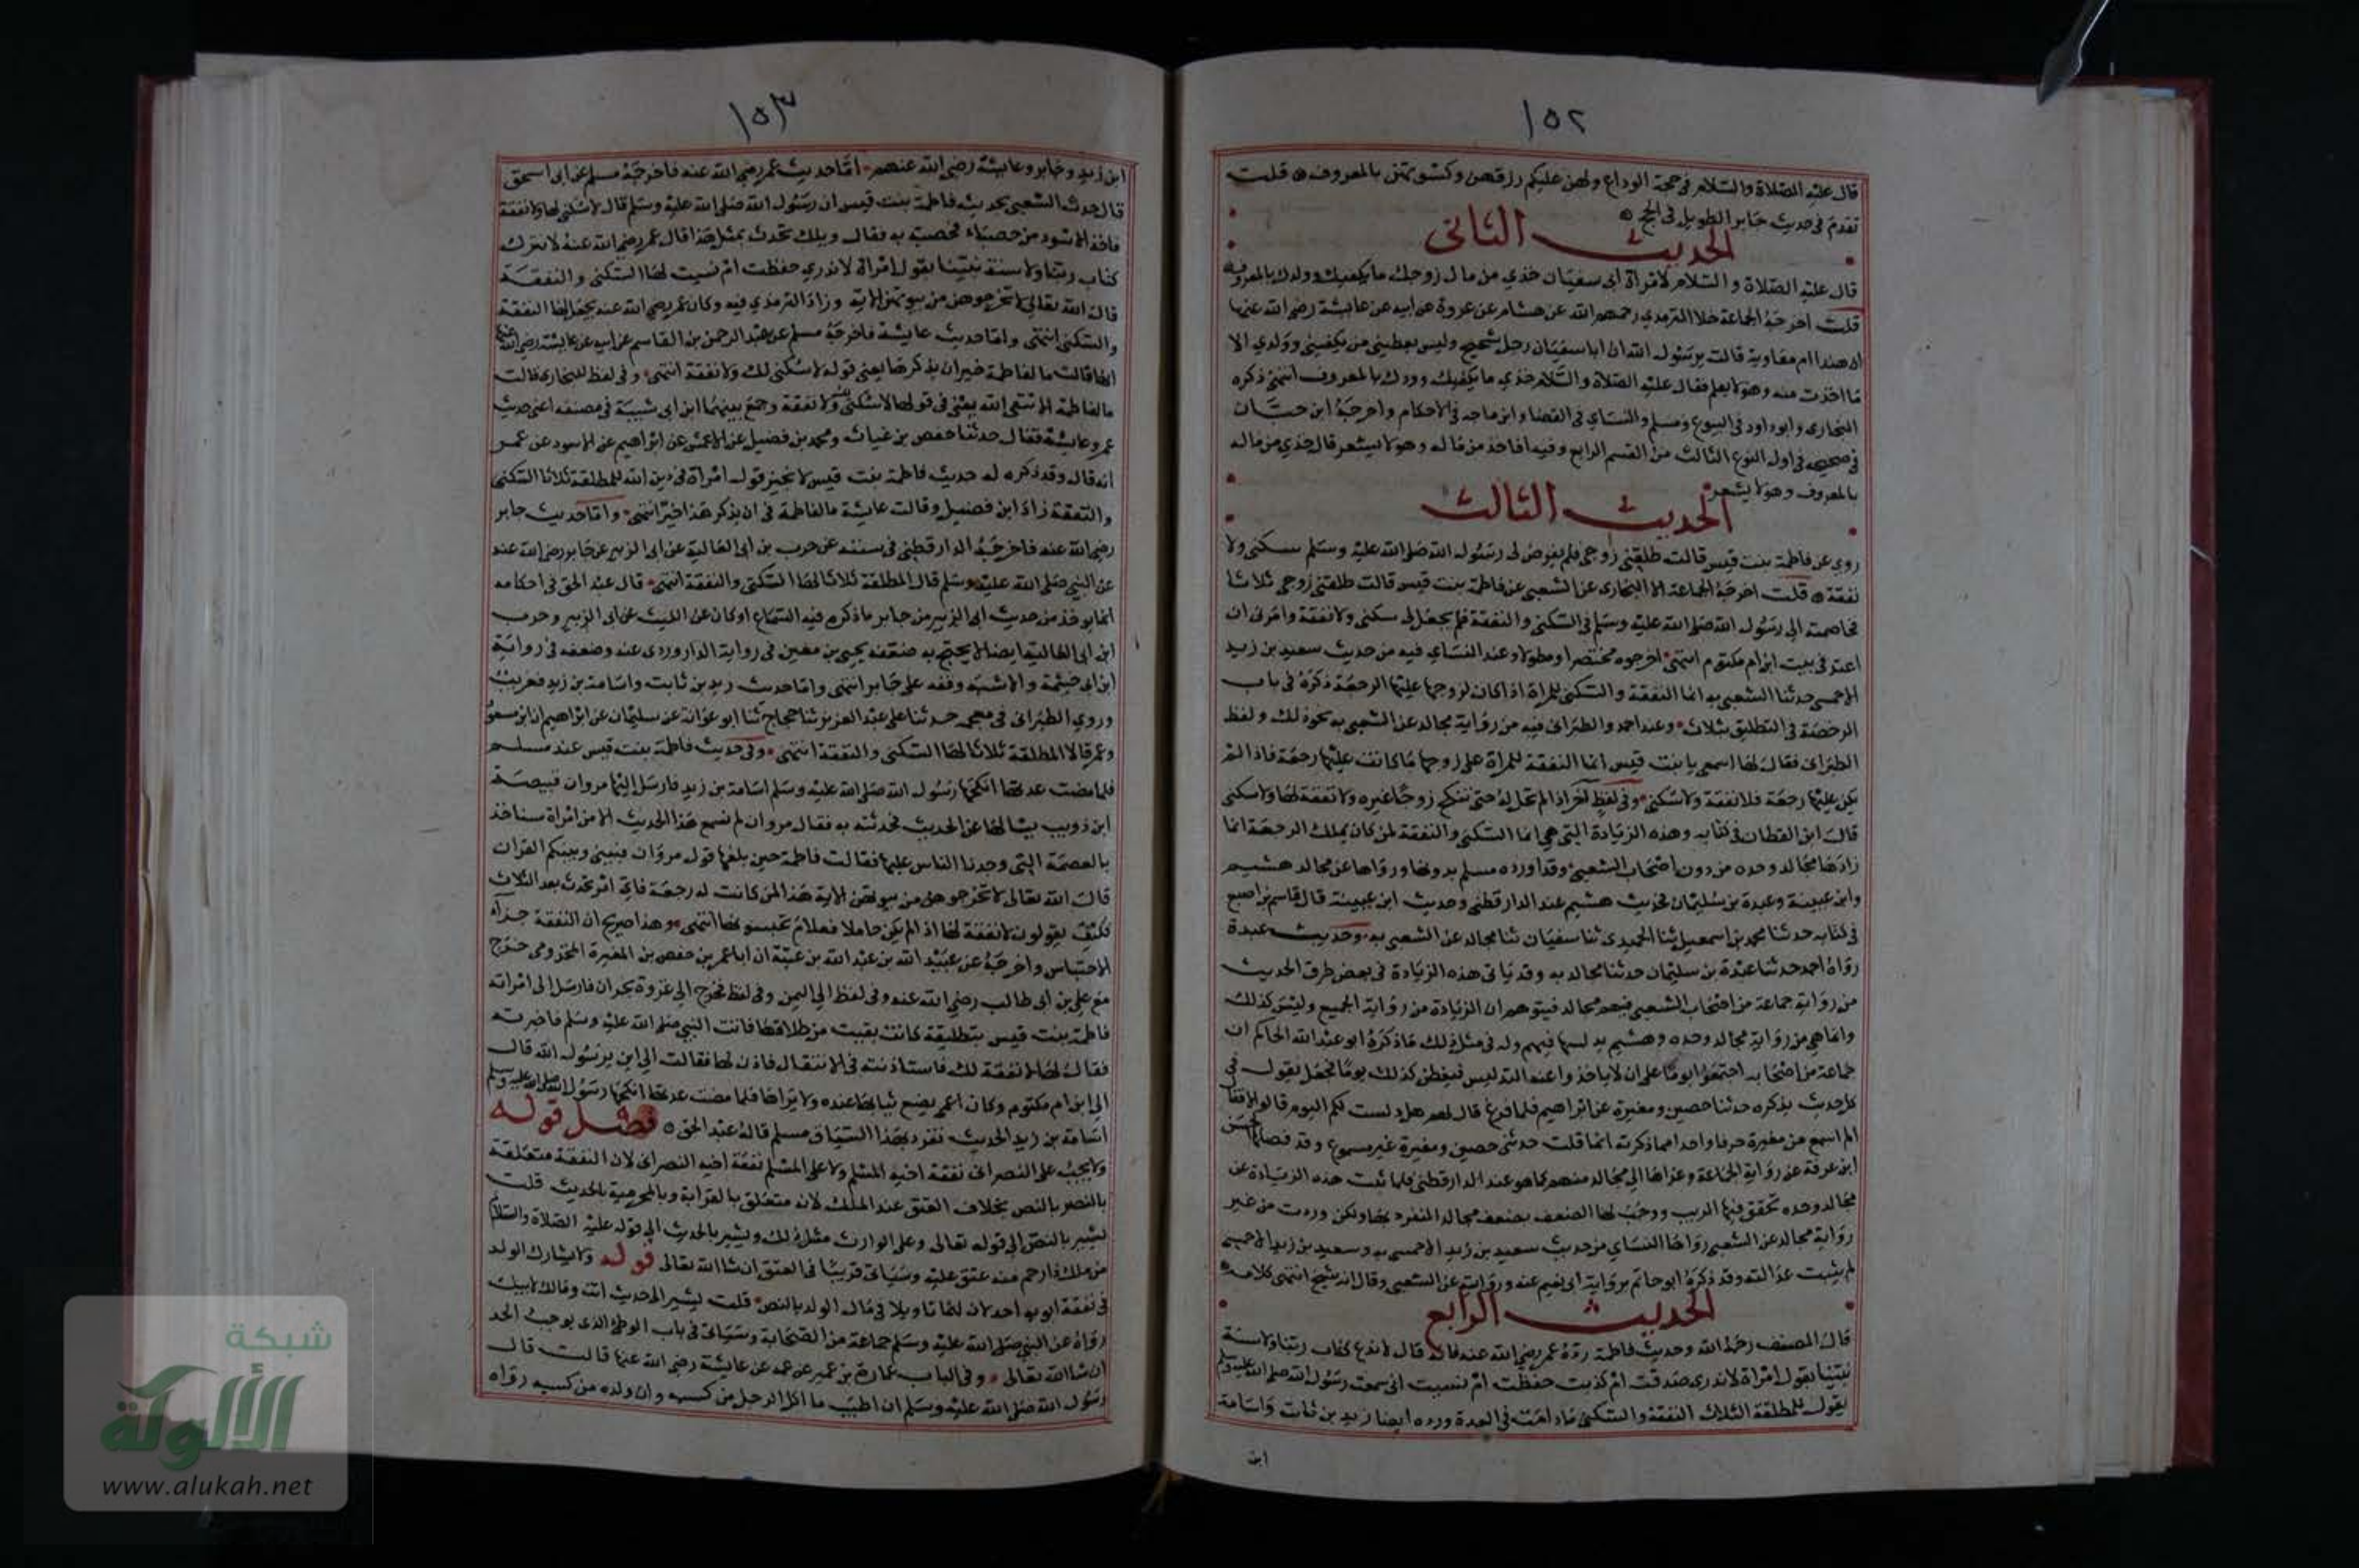 ١٥٢
قال عليه الصلاة والسلام في حجة الوداع ولهن عليكم رزقهن وكسوتهن بالمعروف قلت
تقدم في حديث جابر الطويل في الحج
الحديث الثاني
قال عليه الصلاة والسلام لامرأة ابي سفيان خذي من مال زوجك ما يكفيك وولدك بالمعروف
قلت اخرجه الجماعة خلا الترمذي رحمهم الله عن هشام عن عروة عن ابيه عن عايشة رضي الله عنها
ان هندا ام معاوية قالت يرسول الله ان ابا سفيان رجل شحيح وليس يعطيني من يكفيني وولدي الا
ما اخذت منه وهو لا يعلم فقال عليه الصلاة والسلام خذي ما يكفيك وولدك بالمعروف انتهى ذكره
البخارى وابو داود في البيوع ومسلم والنساي في القضا وابن ماجه في الاحكام واخرجه ابن حبان
في صحيحه في اول النوع الثالث من القسم الرابع وفيه افاخذ من ماله وهو لا يشعر قال خذي من ماله
بالمعروف وهو لا يشعر
الحديث الثالث
روى عن فاطمة بنت قيس قالت طلقني زوجي فلم يفرض لى رسول الله صلى الله عليه وسلم سكنى ولا
نفقة قلت اخرجه الجماعة الا البخارى عن الشعبي عن فاطمة بنت قيس قالت طلقني زوجي ثلاثا
فخاصمته الى رسول الله صلى الله عليه وسلم في السكنى والنفقة فلم يجعل لى سكنى ولا نفقة وامرنى ان
اعتد في بيت ابن ام مكتوم انتهى اخرجوه مختصرا ومطولا وعند النساي فيه من حديث سعيد بن زيد
الاحمسي حدثنا الشعبي به انما النفقة والسكنى للمراة اذا كان لزوجها عليها الرجعة ذكره في باب
الرخصة في التطليق بثلاث وعند احمد والطبرانى فيه من رواية مجالد عن الشعبي به نحو ذلك ولفظ
الطبرانى فقال لها اسمعي يا بنت قيس انما النفقة للمراة على زوجها ما كانت عليها رجعة فاذا لم
يكن عليها رجعة فلا نفقة ولا سكنى وفي لفظ آخر اذا لم تحل له حتى تنكح زوجا غيره ولا نفقة لها ولا سكنى
قال ابن القطان في كتابه وهذه الزيادة التي هي انما السكنى والنفقة لمن كان يملك الرجعة انما
زادها مجالد وحده من دون اصحاب الشعبي وقد اورده مسلم بدونها ورواها عن مجالد هشيم
وابن عيينة وعبدة بن سليمان فحديث هشيم عند الدارقطني وحديث ابن عيينة قال قاسم بن اصبع
في كتابه حدثنا محمد بن اسمعيل ثنا الحميدى ثنا سفيان ثنا مجالد عن الشعبي به وحديث عبدة
رواه احمد حدثنا عبدة بن سليمان حدثنا مجالد به وقد ياتى هذه الزيادة في بعض طرق الحديث
من رواية جماعة من اصحاب الشعبي فيهم مجالد فيتوهم ان الزيادة من رواية الجميع وليس كذلك
وانما هي من رواية مجالد وحده وهشيم يدلسها فيهم وله في مثل ذلك ما ذكره ابو عبد الله الحاكم ان
جماعة من اصحابه اجتمعوا يوما على ان لا ياخذوا عنه التدليس ففطن لذلك يوما فجعل يقول في
كل حديث يذكره حدثنا حصين ومغيرة عن ابراهيم فلما فرغ قال لهم هل دلست لكم اليوم قالوا لا فقال
لم اسمع من مغيرة حرفا واحدا مما ذكرته انما قلت حدثنى حصين ومغيرة غير مسموع وقد فصلها الحسن
ابن عرفة عن رواية الجماعة وعزاها الى مجالد منهم كما هو عند الدارقطني فلما ثبت هذه الزيادة عن
مجالد وحده تحقق فيها الريب ووجب لها الضعف بضعف مجالد المنفرد بها ولكن وردت من غير
رواية مجالد عن الشعبي رواها النساي من حديث سعيد بن زيد الاحمسي به وسعيد بن زيد الاحمسي
لم يثبت عدالته وقد ذكره ابو حاتم برواية ابي نعيم عنه وروايته عن الشعبي وقال انه شيخ انتهى كلامه
الحديث الرابع
قال المصنف رحمه الله وحديث فاطمة رده عمر رضي الله عنه فانه قال لا ندع كتاب ربنا ولا سنة
نبينا بقول امراة لا ندرى صدقت ام كذبت حفظت ام نسيت انى سمعت رسول الله صلى الله عليه وسلم
يقول للمطلقة الثلاث النفقة والسكنى ما دامت في العدة ورده ايضا زيد بن ثابت واسامة
ابن
١٥٣
ابن زيد وجابر وعايشة رضي الله عنهم اما حديث عمر رضي الله عنه فاخرجه مسلم عن ابى اسحق
قال حدث الشعبي بحديث فاطمة بنت قيس ان رسول الله صلى الله عليه وسلم قال لا سكنى لها ولا نفقة
فاخذ الاسود من حصباء فحصبه به فقال ويلك تحدث بمثل هذا قال عمر رضي الله عنه لا نترك
كتاب ربنا ولا سنة نبينا بقول امراة لا ندري حفظت ام نسيت لها السكنى والنفقة
قال الله تعالى لا تخرجوهن من بيوتهن الاية وزاد الترمذي فيه وكان عمر رضي الله عنه يجعل لها النفقة
والسكنى انتهى واما حديث عايشة فاخرجه مسلم عن عبد الرحمن بن القاسم عن ابيه عن عايشة رضي الله عنها
انها قالت ما لفاطمة خير ان يذكر هذا يعنى قوله لا سكنى لك ولا نفقة انتهى وفي لفظ للبخارى قالت
ما لفاطمة الا تتقي الله يعني في قولها لا سكنى ولا نفقة وجمع بينهما ابن ابى شيبة في مصنفه اعني حديث
عمر وعايشة فقال حدثنا حفص بن غياث ومحمد بن فضيل عن الاعمش عن ابراهيم عن الاسود عن عمر
انه قال وقد ذكر له حديث فاطمة بنت قيس لا نجيز قول امراة في دين الله للمطلقة ثلاثا السكنى
والنفقة زاد ابن فضيل وقالت عايشة ما لفاطمة في ان يذكر هذا خير انتهى واما حديث جابر
رضي الله عنه فاخرجه الدارقطني في سننه عن حرب بن ابى العالية عن ابى الزبير عن جابر رضي الله عنه
عن النبي صلى الله عليه وسلم قال المطلقة ثلاثا لها السكنى والنفقة انتهى قال عبد الحق في احكامه
انما يوخذ من حديث ابي الزبير من جابر ما ذكر فيه السماع او كان عن الليث عن ابى الزبير وحرب
ابن ابى العالية ايضا لا يحتج به ضعفه يحيى بن معين في رواية الدارورى عنه وضعفه في رواية
ابن ابى خيثمة والاشبه وقفه على جابر انتهى واما حديث زيد بن ثابت واسامة بن زيد فغريب
وروى الطبرانى في معجمه حدثنا على عبد العزيز ثنا حجاج ثنا ابو عوانة عن سليمان عن ابراهيم ان ابن مسعود
وعمر قالا المطلقة ثلاثا لها السكنى والنفقة انتهى وفي حديث فاطمة بنت قيس عند مسلم
فلما مضت عدتها انكحها رسول الله صلى الله عليه وسلم اسامة بن زيد فارسل اليها مروان قبيصة
ابن ذويب يسالها عن الحديث فحدثته به فقال مروان لم نسمع هذا الحديث الا من امراة سناخذ
بالعصمة التي وجدنا الناس عليها فقالت فاطمة حين بلغها قول مروان فبيني وبينكم القران
قال الله تعالى لا تخرجوهن من بيوتهن الاية هذا لمن كانت له رجعة فاي امر يحدث بعد الثلاث
فكيف يقولون لا نفقة لها اذا لم يكن حاملا فعلام تحبسونها انتهى وهذا صريح ان النفقة جزاء
الاحتباس واخرجه عن عبيد الله بن عبد الله بن عتبة ان ابا عمر بن حفص بن المغيرة المخزومى خرج
مع على بن ابى طالب رضي الله عنه وفي لفظ الى اليمن وفي لفظ فخرج الى غزوة نجران فارسل الى امراته
فاطمة بنت قيس بتطليقة كانت بقيت من طلاقها فاتت النبي صلى الله عليه وسلم فاخبرته
فقال لها لا نفقة لك فاستاذنته في الانتقال فاذن لها فقالت الى اين يرسول الله قال
الى ابن ام مكتوم وكان اعمى يضع ثيابها عنده ولا يراها فلما مضت عدتها انكحها رسول الله صلى الله عليه وسلم
اسامة بن زيد الحديث تفرد بهذا السياق مسلم قاله عبد الحق فصل قوله
ولا يجب على النصرانى نفقة اخيه المسلم ولا على المسلم نفقة اخيه النصرانى لان النفقة متعلقة
بالنص بخلاف العتق عند الملك لانه متعلق بالقرابة وبالمحرمية بالحديث قلت
يشير بالنص الى قوله تعالى وعلى الوارث مثل ذلك ويشير بالحديث الى قوله عليه الصلاة والسلام
من ملك ذا رحم منه عتق عليه وسياتى قريبا في العتق ان شا الله تعالى قوله ولا يشارك الولد
في نفقة ابويه احد لان لهما تاويلا في مال الولد بالنص قلت يشير الى حديث انت ومالك لابيك
رواه عن النبي صلى الله عليه وسلم جماعة من الصحابة وسياتى في باب الوطئ الذى يوجب الحد
ان شا الله تعالى وفي الباب عمارة بن عمير عن عمه عن عايشة رضي الله عنها قالت قال
رسول الله صلى الله عليه وسلم ان اطيب ما اكل الرجل من كسبه وان ولده من كسبه رواه
شبكة
الألوكة
www.alukah.net